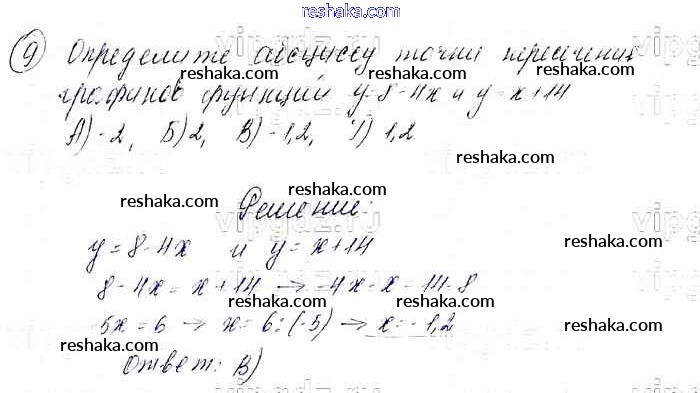 reshaka.com
9 Определите абсциссу точки пересечения
reshaka.com reshaka.com
графиков функций y=8-4x и y=x+14
reshaka.com reshaka.com
А) -2, Б) 2, В) -1,2, Г) 1,2
reshaka.com
reshaka.com reshaka.com
Решение:
y=8-4x и y=x+14
reshaka.com reshaka.com reshaka.com
8-4x=x+14 → -4x-x=14-8
reshaka.com
-5x=6 → x=6:(-5) → x=-1,2
reshaka.com reshaka.com
Ответ: В)
reshaka.com